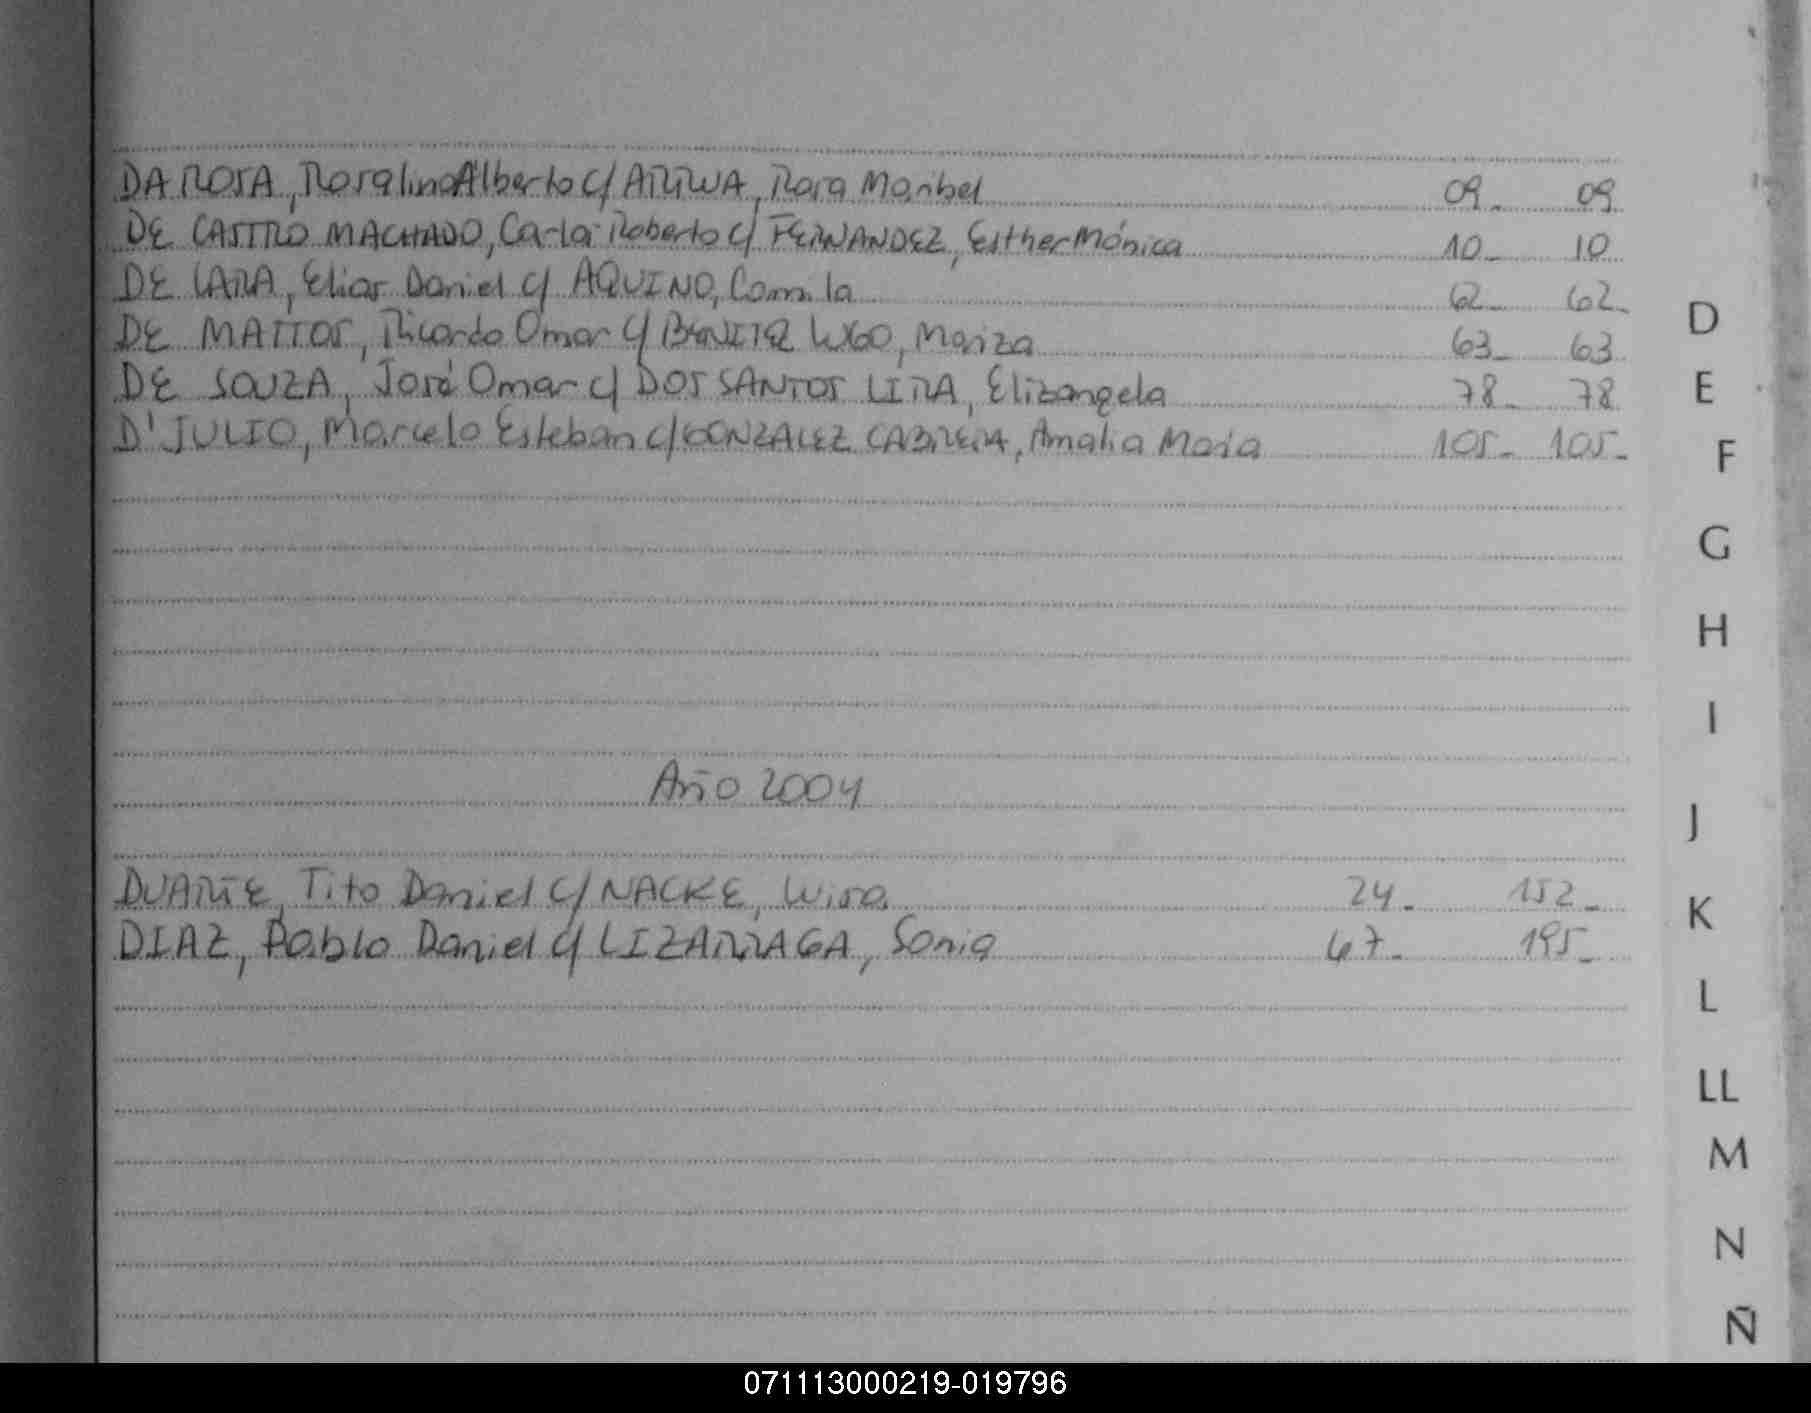 DA ROSA, Rosalino Alberto c/ ARRUA, Rosa Maribel 09_ 09
DE CASTRO MACHADO, Carlos Roberto c/ FERNANDEZ, Esther Mónica 10_ 10
DE LARA, Elias Daniel c/ AQUINO, Camila 62_ 62_
DE MATTOS, Ricardo Omar c/ BENITEZ LUGO, Mariza 63_ 63
DE SOUZA, José Omar c/ DOS SANTOS LIRA, Elizangela 78_ 78
D'JULIO, Marcelo Esteban c/ GONZALEZ CABRERA, Amalia Maria 105_ 105_
Año 2004
DUARTE, Tito Daniel c/ NACKE, Luisa 24_ 152_
DIAZ, Pablo Daniel c/ LIZARRAGA, Sonia 67_ 195_
D
E
F
G
H
I
J
K
L
LL
M
N
Ñ
071113000219-019796